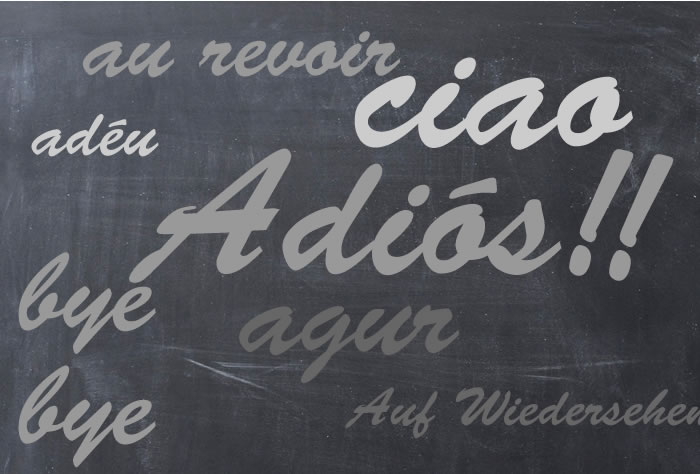 au revoir
ciao
adéu
Adiós!!
bye
agur
bye
Auf Wiedersehen